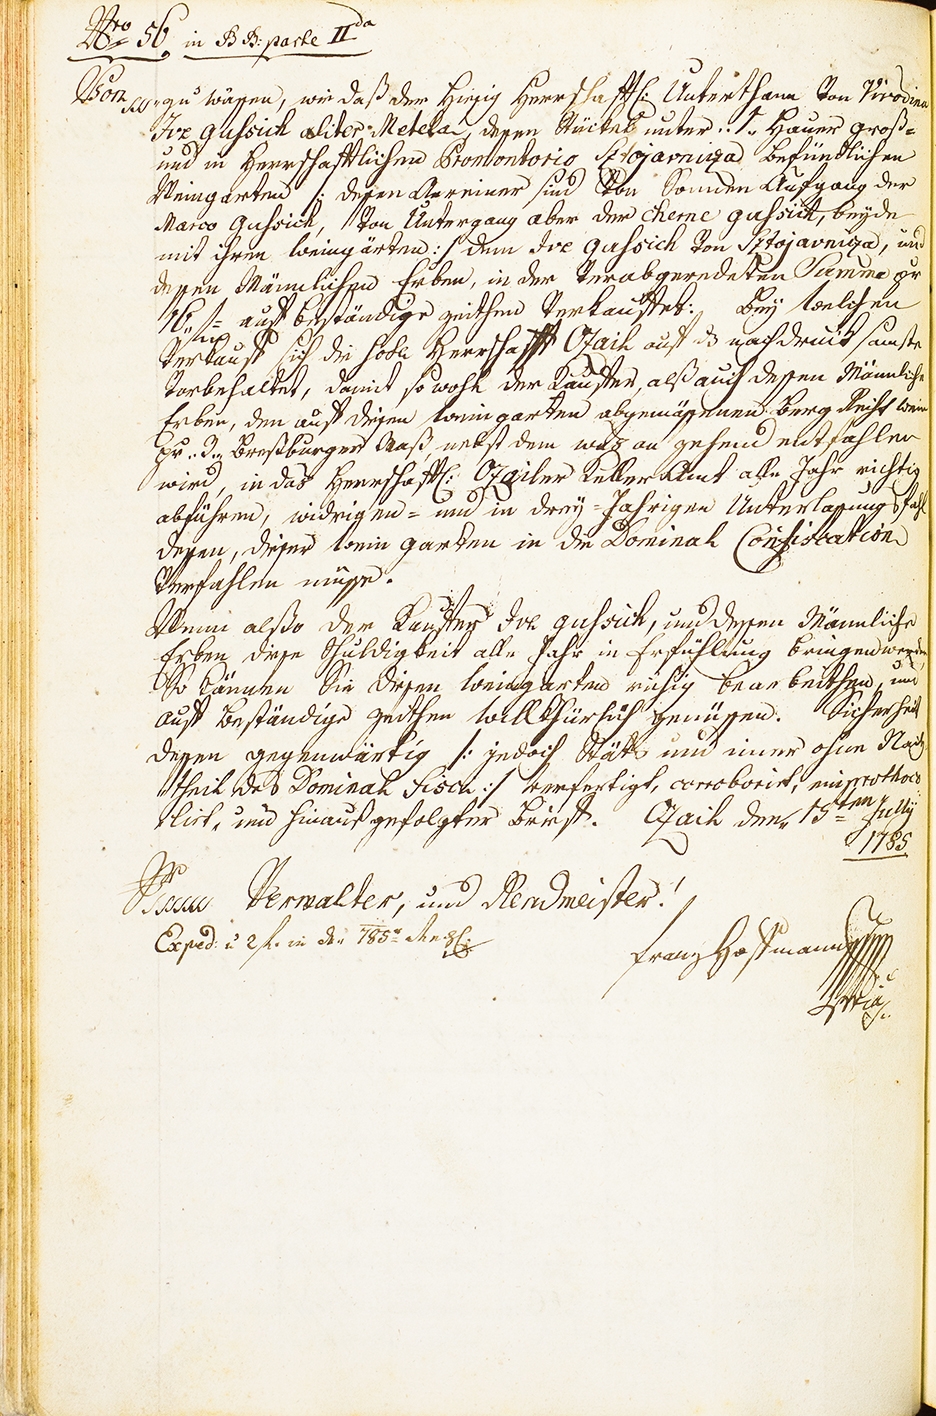 Nro 56. in B B: parte IIda
Von zu wissen, wie daß der hiesig Herrschaftl: Unterthann Von Virodina
Ive Gussich aliter Metela, dessen Stückel unter .. 1. Hauer groß=
und in Herrschaftlichen Promontorio Sztojavniza befündlichen
Weingarten /: dessen Anreiner sind Von Sonnen Aufgang der
Marco Gussich, Von Untergang aber der Cherne Gussich, beyde
mit ihren Weingärten :/ dem Ive Gussich Von Sztojavniza, und
dessen Männlichen Erben, in der Verabgeredeten Summe pr
16,, f= auf beständige zeithen Verkauffet: Bey welchen
Verkauf sich die hohe Herrschafft Ozail auf das nachdruck samste
Vorbehaltet, damit so wohl der Kauffer, alß auch dessen Männliche
Erben, den auf diesen Weingarten abgemässenen Berg Recht Wein
pr .. 3,, Preßburger Maß, nebst dem was an zehend entfahlen
wird, in das Herrschaftl: Ozailer Keller Amt alle Jahr richtig
abführen, widrigen= und in drey=Jahrigen Unterlassungs fahl
dessen, dieser Wein garten in die Dominal Confiscation
Verfahlen müsse.
Wenn alßo der Kauffer Ive Gussich, und dessen Männliche
Erben diese Schuldigkeit alle Jahr in Erfühllung bringen werden
So können Sie diesen Weingarten ruhig bearbeithen, und
auf beständige zeithen willkührlich genüssen. Sicherheit
dessen gegenwärtig /: jedoch Stäts und imer ohne Nach
theil des Dominal Fisci :/ verfertigt, corroborirt, einprothoco
lirt, und hinauß gefolgter Brief. Ozail den 15ten July
1785
Verwalter, und Rendmeister!
Exped: à 2 f. in die 785
Franz Hoffmann